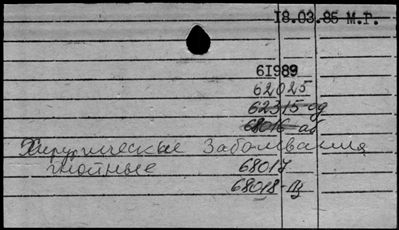 18.03.85 М.Г.
61989
62025
62315-од
68016-аб
Хирургические Заболевания
гнойные 68017
68018-Щ